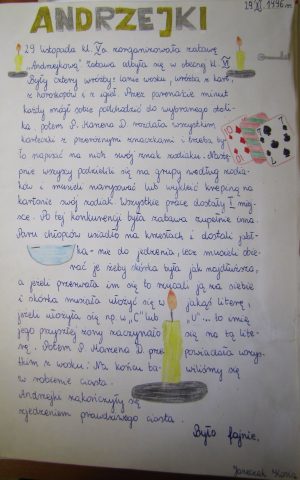 ANDRZEJKI
29 XI. 1996 r.
29 listopada kl. Va zorganizowała zabawę
"Andrzejkową". Zabawa odbyła się w obecnej kl. VI
Były cztery wróżby: lanie wosku, wróżba z kart,
z horoskopów i z igieł. Przez parenaście minut
każdy mógł sobie podchodzić do wybranego stoli-
ka potem P. Marena D. rozdała wszystkim
karteczki z przeróżnymi znaczkami i trzeba by-
ło napisać na nich swój znak zodiaku. Nastę-
pnie wszyscy podzielili się na grupy według zodia-
ków i musieli narysować lub wykleić krepiną na
kartonie swój zodiak. Wszystkie prace dostały I miej-
sce. Po tej konkurencji była zabawa zupełnie inna.
Paru chłopców usiadło na krzesłach i dostali jabł-
ka - nie do jedzenia, lecz musieli obie-
rać je żeby skórka była jak najdłuższa,
a jeżeli przerwała im się to rzucali ją na siebie
i skórka musiała ułożyć się w jakąś literę,
jeżeli ułożyła się np. w "C" lub "U"... to imię
jego przyszłej żony zaczynało się na tą lite-
rę. Potem P. Marena D. przepowiadała wszys-
tkim z wosku. Na końcu bawiliśmy się
w robienie ciasta.
Andrzejki zakończyły się
zjedzeniem prawdziwego ciasta.
Było fajnie.